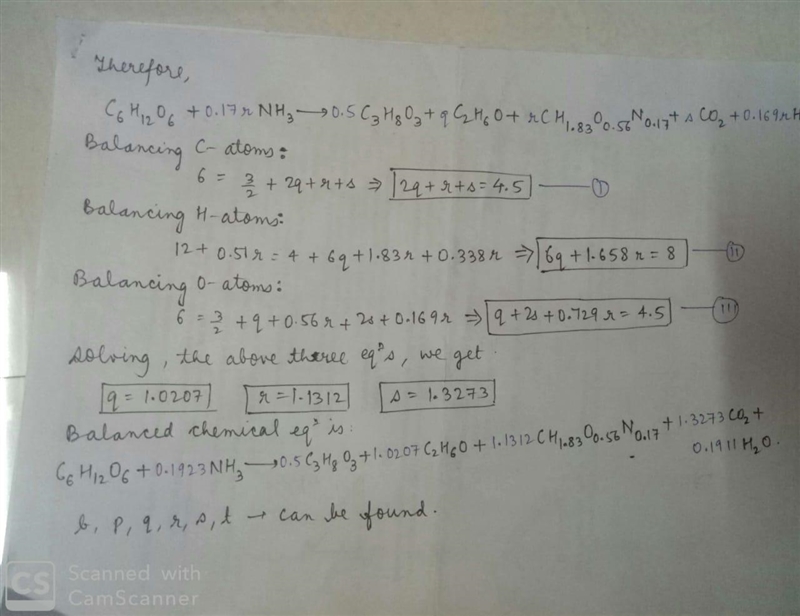 Therefore,
C6H12O6 + 0.17r NH3 → 0.5 C3H8O3 + q C2H6O + r CH1.83O0.56N0.17 + s CO2 + 0.169r H
Balancing C-atoms:
6 = 3/2 + 2q + r + s ⇒ 2q + r + s = 4.5 — (I)
Balancing H-atoms:
12 + 0.51r = 4 + 6q + 1.83r + 0.338r ⇒ 6q + 1.658r = 8 — (II)
Balancing O-atoms:
6 = 3/2 + q + 0.56r + 2s + 0.169r ⇒ q + 2s + 0.729r = 4.5 — (III)
Solving, the above theree eqns, we get.
q = 1.0207 r = 1.1312 s = 1.3273
Balanced chemical eqn is:
C6H12O6 + 0.1923NH3 → 0.5 C3H8O3 + 1.0207 C2H6O + 1.1312 CH1.83O0.56N0.17 + 1.3273 CO2 +
0.1911 H2O.
b, p, q, r, s, t → can be found.
CS Scanned with
CamScanner